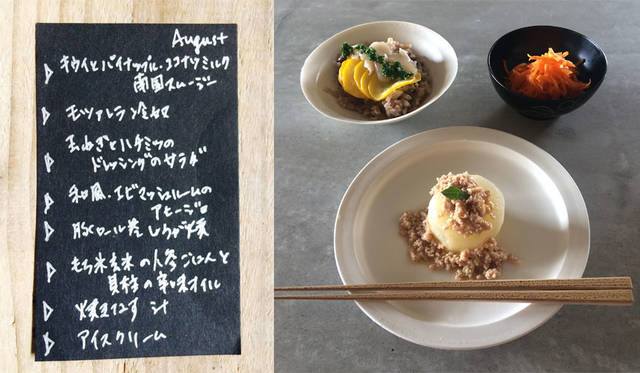 August
▷ キウイとパイナップル・ココナツミルク
南国スムージー
▷ モッツァレラ冷奴
▷ 玉ねぎとハチミツの
ドレッシングのサラダ
▷ 和風・エビマッシュルームの
アヒージョ
▷ 豚ロール巻 しょうが焼
▷ もち米玄米の人参ごはんと
貝柱の 味オイル
▷ 焼なす 汁
▷ アイスクリーム